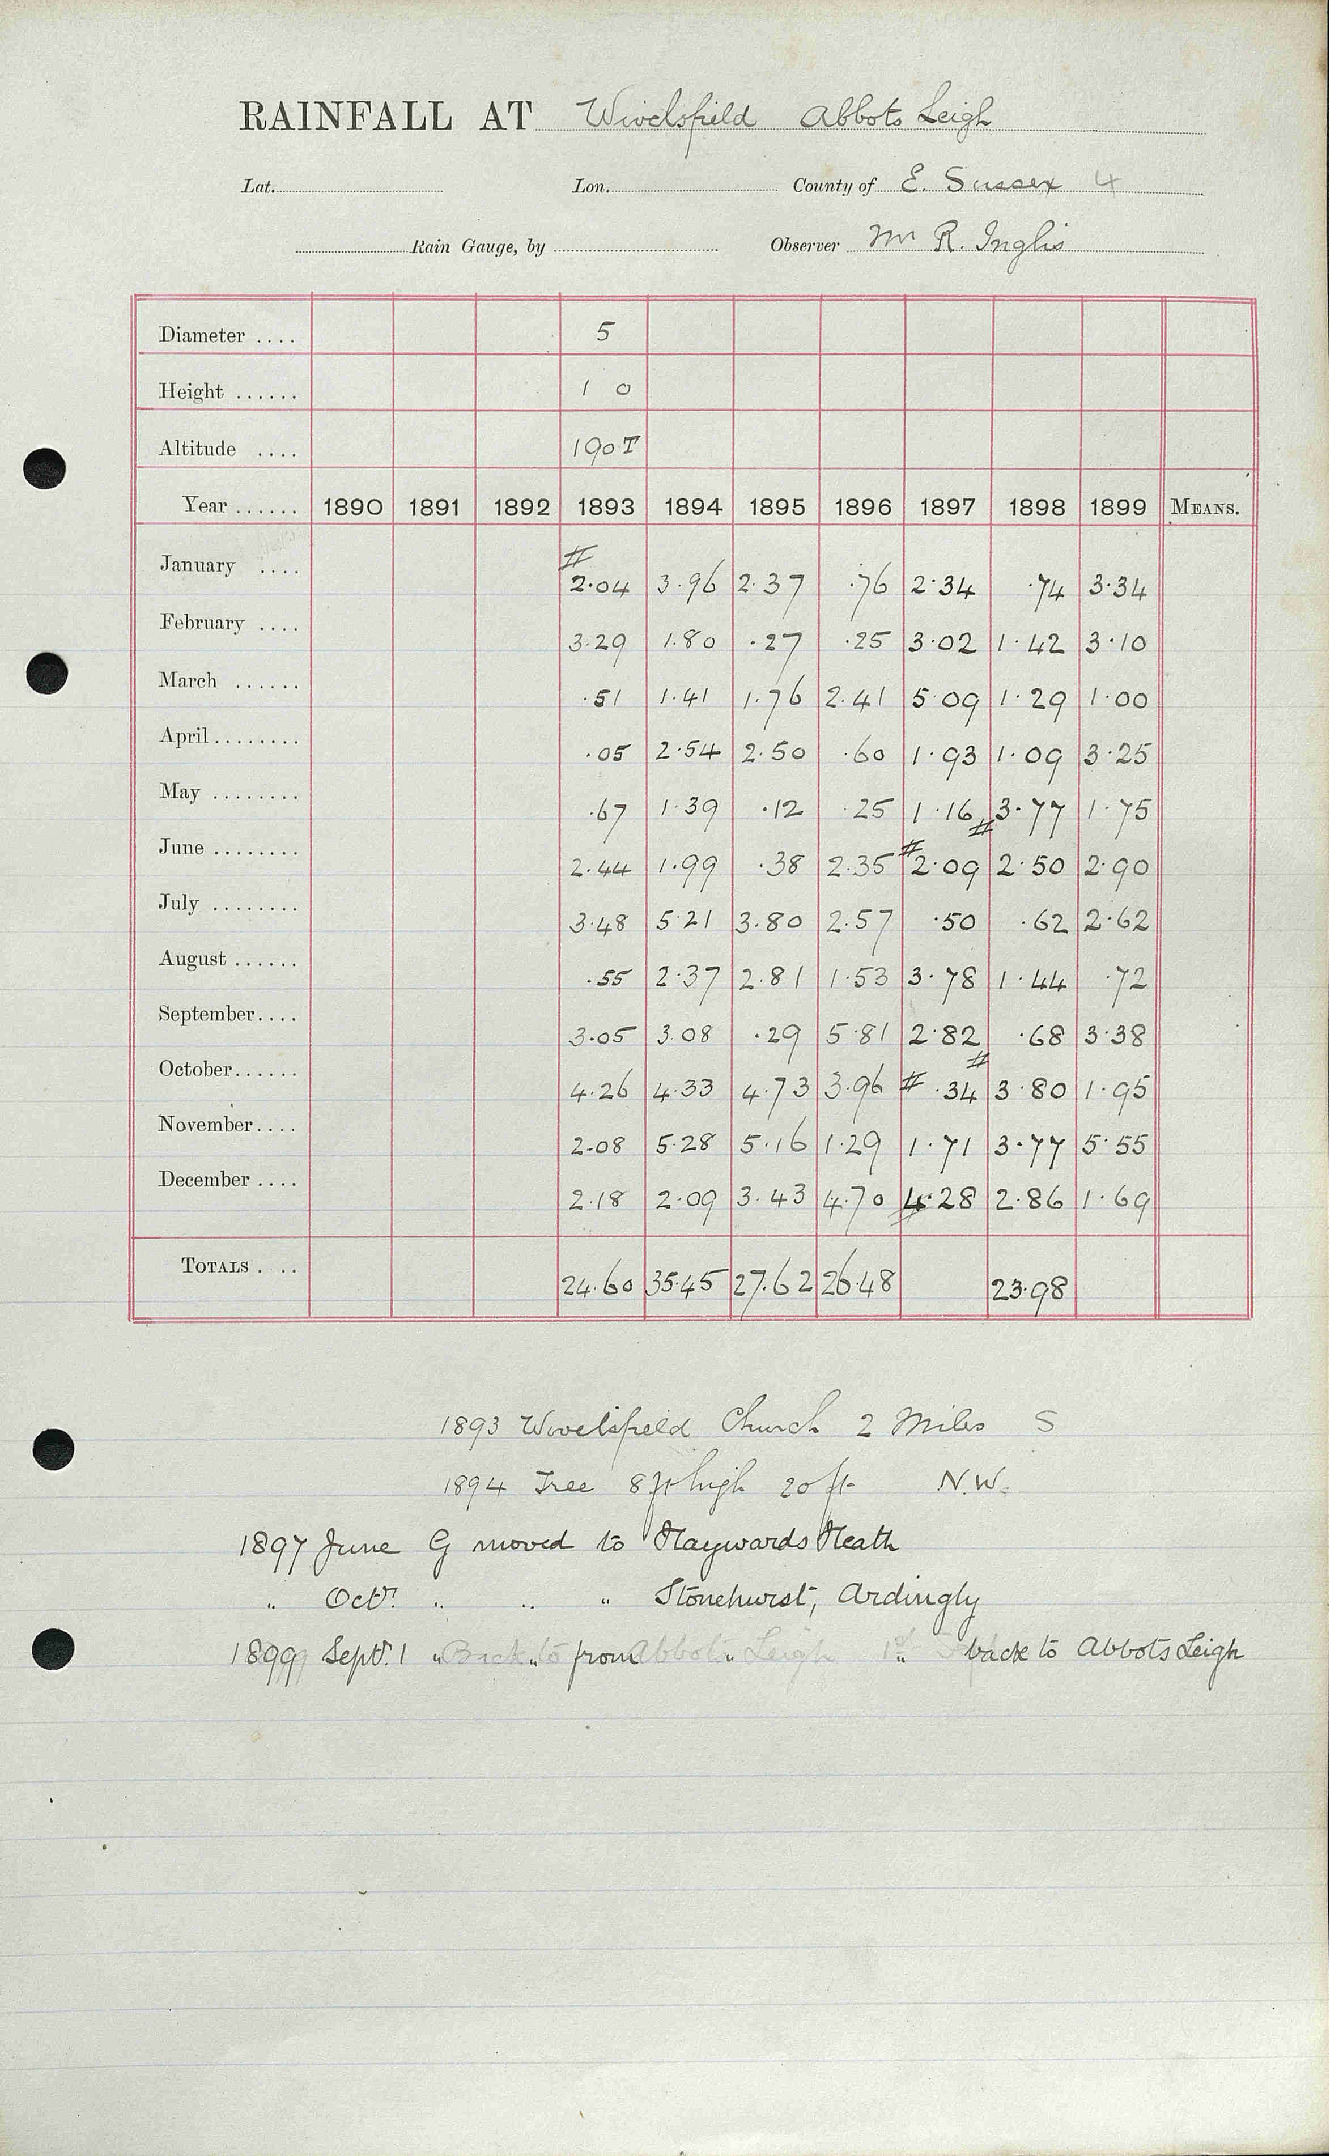 RAINFALL AT Wivelsfield Abbots Leigh
Lat. Lon. County of E. Sussex 4
Rain Gauge, by Observer Mr R. Inglis
Diameter .... 5
Height ...... 1 0
Altitude .... 190 T
Year ...... 1890 1891 1892 1893 1894 1895 1896 1897 1898 1899 MEANS.
#
January .... 2.04 3.96 2.37 .76 2.34 .74 3.34
February .... 3.29 1.80 .27 .25 3.02 1.42 3.10
March ...... .51 1.41 1.76 2.41 5.09 1.29 1.00
April........ .05 2.54 2.50 .60 1.93 1.09 3.25
May ........ .67 1.39 .12 .25 1.16 # 3.77 1.75
June ........ 2.44 1.99 .38 2.35 # 2.09 2.50 2.90
July ........ 3.48 5.21 3.80 2.57 .50 .62 2.62
August ...... .55 2.37 2.81 1.53 3.78 1.44 .72
September.... 3.05 3.08 .29 5.81 2.82 # .68 3.38
October...... 4.26 4.33 4.73 3.96 # .34 3.80 1.95
November.... 2.08 5.28 5.16 1.29 1.71 3.77 5.55
December .... 2.18 2.09 3.43 4.70 4.28 2.86 1.69
TOTALS . .. 24.60 35.45 27.62 26.48 23.98
1893 Wivelsfield Church 2 Miles S
1894 Tree 8 ft high 20 ft N.W.
1897 June G moved to Haywards Heath
" Octr. " " " Stonehurst, Ardingly
1899 Septr. 1 " " from " " back to Abbots Leigh